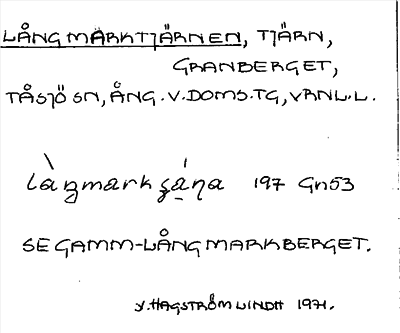 LÅNGMARKTJÄRNEN, TJÄRN,
GRANBERGET,
TÅSJÖ SN, ÅNG. V. DOMS. TG, VRNL. L.
197 Gn53
SE GAMM-LÅNGMARKBERGET.
Y. HAGSTRÖM LINDH 1971.